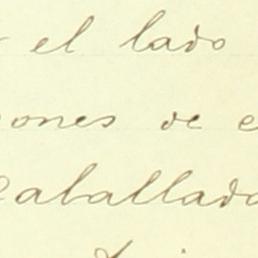 el lado
ones de
aballado